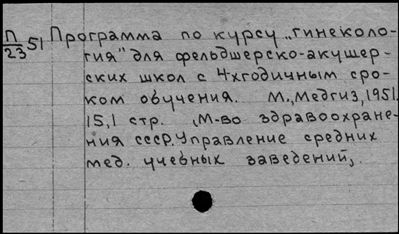 П/23 51 Программа по курсу „гинеколо-
гия" для фельдшерско-акушер-
ских школ с 4хгодичным сро-
ком обучения. М., Медгиз, 1951.
15,1 стр. М-во здравоохране-
ния СССР. Управление средних
мед. учебных заведений,.